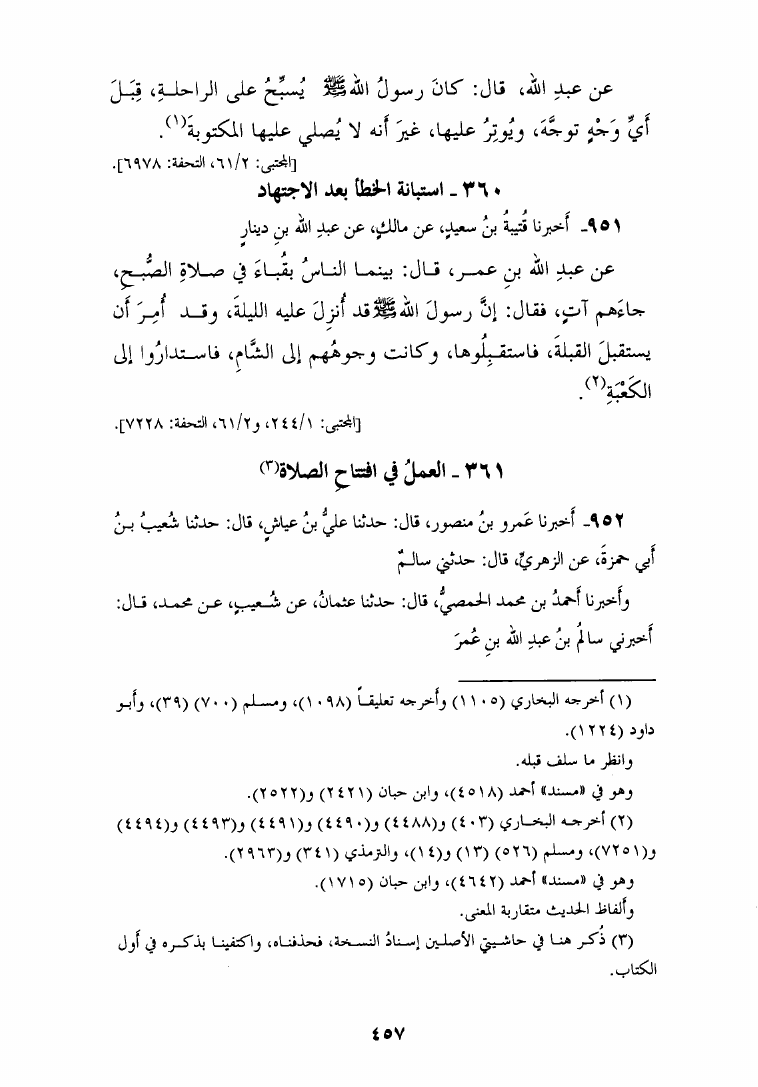 عن عبدِ الله، قال: كانَ رسولُ اللهﷺ يُسبِّحُ على الراحلـةِ، قِبَـلَ
أيِّ وَجْهٍ توجَّهَ، ويُوتِرُ عليها، غيرَ أنه لا يُصلي عليها المكتوبةَ(١).
[المجتبى: ٦١/٢، التحفة: ٦٩٧٨].
٣٦٠ ـ استبانة الخطأ بعد الاجتهاد
٩٥١ـ أخبرنا قُتيبةُ بنُ سعيدٍ، عن مالكٍ، عن عبدِ الله بنِ دينارٍ
عن عبدِ الله بنِ عمـر، قـال: بينمـا النـاسُ بقُبـاءَ في صـلاةِ الصُّبـحِ،
جاءَهم آتٍ، فقال: إنَّ رسولَ اللهﷺ قد أُنزِلَ عليه الليلةَ، وقـد أُمِـرَ أن
يستقبلَ القبلةَ، فاستقـبِلُوها، وكانت وجوهُهم إلى الشَّامِ، فاسـتدارُوا إلى
الكَعْبَةِ(٢).
[المجتبى: ٢٤٤/١، و٦١/٢، التحفة: ٧٢٢٨].
٣٦١ ـ العملُ في افتتاحِ الصلاة(٣)
٩٥٢ـ أخبرنا عَمرو بنُ منصور، قال: حدثنا عليُّ بنُ عياشٍ، قال: حدثنا شُعيبُ بـنُ
أبي حمزةَ، عن الزهريِّ، قال: حدثني سالـمٌ
وأخبرنا أحمدُ بن محمد الحمصيُّ، قال: حدثنا عثمانُ، عن شُـعيبٍ، عـن محمـد، قـال:
أخبرني سالمُ بنُ عبدِ الله بنِ عُمرَ
(١) أخرجه البخاري (١١٠٥) وأخرجه تعليقـاً (١٠٩٨)، ومسلم (٧٠٠) (٣٩)، وأبـو
داود (١٢٢٤).
وانظر ما سلف قبله.
وهو في «مسند» أحمد (٤٥١٨)، وابن حبان (٢٤٢١) و(٢٥٢٢).
(٢) أخرجـه البخـاري (٤٠٣) و(٤٤٨٨) و(٤٤٩٠) و(٤٤٩١) و(٤٤٩٣) و(٤٤٩٤)
و(٧٢٥١)، ومسلم (٥٢٦) (١٣) و(١٤)، والترمذي (٣٤١) و(٢٩٦٣).
وهو في «مسند» أحمد (٤٦٤٢)، وابن حبان (١٧١٥).
وألفاظ الحديث متقاربة المعنى.
(٣) ذُكـر هنـا في حاشـيتي الأصلـين إسـنادُ النسـخة، فحذفنـاه، واكتفينـا بذكـره في أول
الكتاب.
٤٥٧